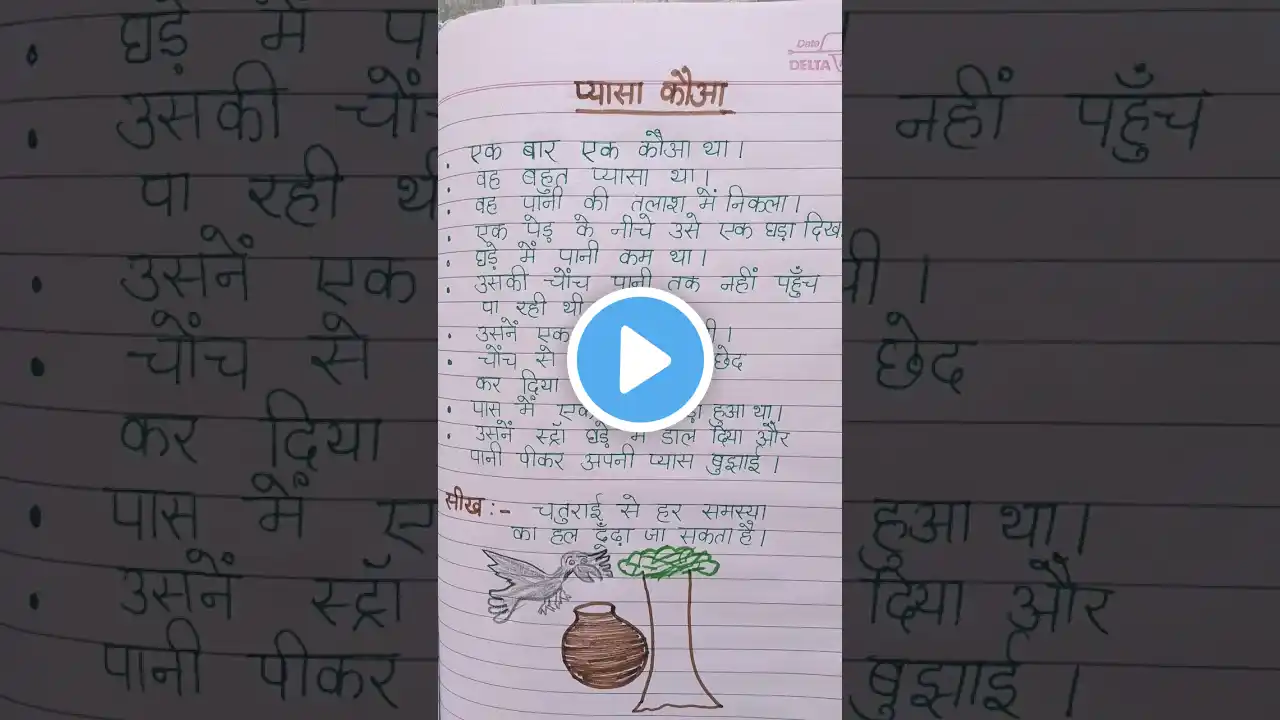 Date
DELTA
प्यासा कौआ
एक बार एक कौआ था।
वह बहुत प्यासा था।
वह पानी की तलाश में निकला।
एक पेड़ के नीचे उसे एक घड़ा दिख
घड़े में पानी कम था।
उसकी चोंच पानी तक नहीं पहुँच
पा रही थी
उसनें एक
चोंच से छेद
कर दिया
पास में एक हुआ था।
उसनें स्ट्रॉ घड़े में डाल दिया और
पानी पीकर अपनी प्यास बुझाई।
सीख :- चतुराई से हर समस्या
का हल ढूँढ़ा जा सकता है।